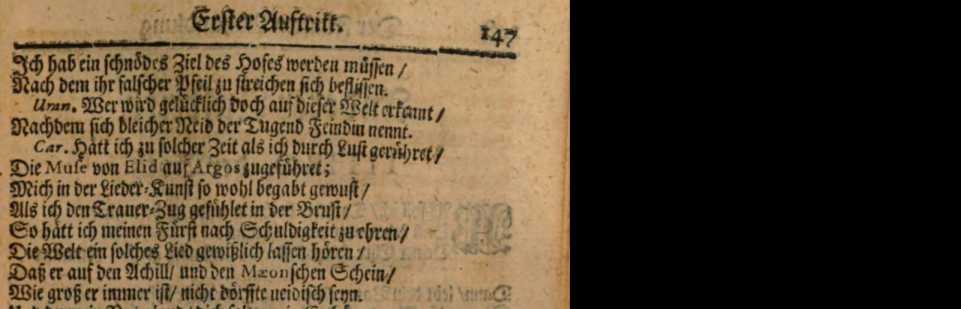 Erster Aufftritt. 147
Ich hab ein schnödes Ziel des Hofes werden müssen /
Nach dem ihr falscher Pfeil zu streichen sich beflissen.
Uran. Wer wird gelücklich doch auf dieser Welt erkennt /
Nachdem sich bleicher Neid der Tugend Feindin nennt.
Car. Hätt ich zu solcher Zeit als ich durch Lust gerühret /
Die Muse von Elid auf Argos zugeführet;
Mich in der Lieder-Kunst so wohl begabt gewust /
Als ich den Trauer-Zug gefühlet in der Brust /
So hätt ich meinen Fürst nach Schuldigkeit zu ehren /
Die Welt ein solches Lied gewißlich lassen hören /
Daß er auf den Achill / und den Mæonschen Schein /
Wie groß er immer ist / nicht dörffte neidisch seyn.